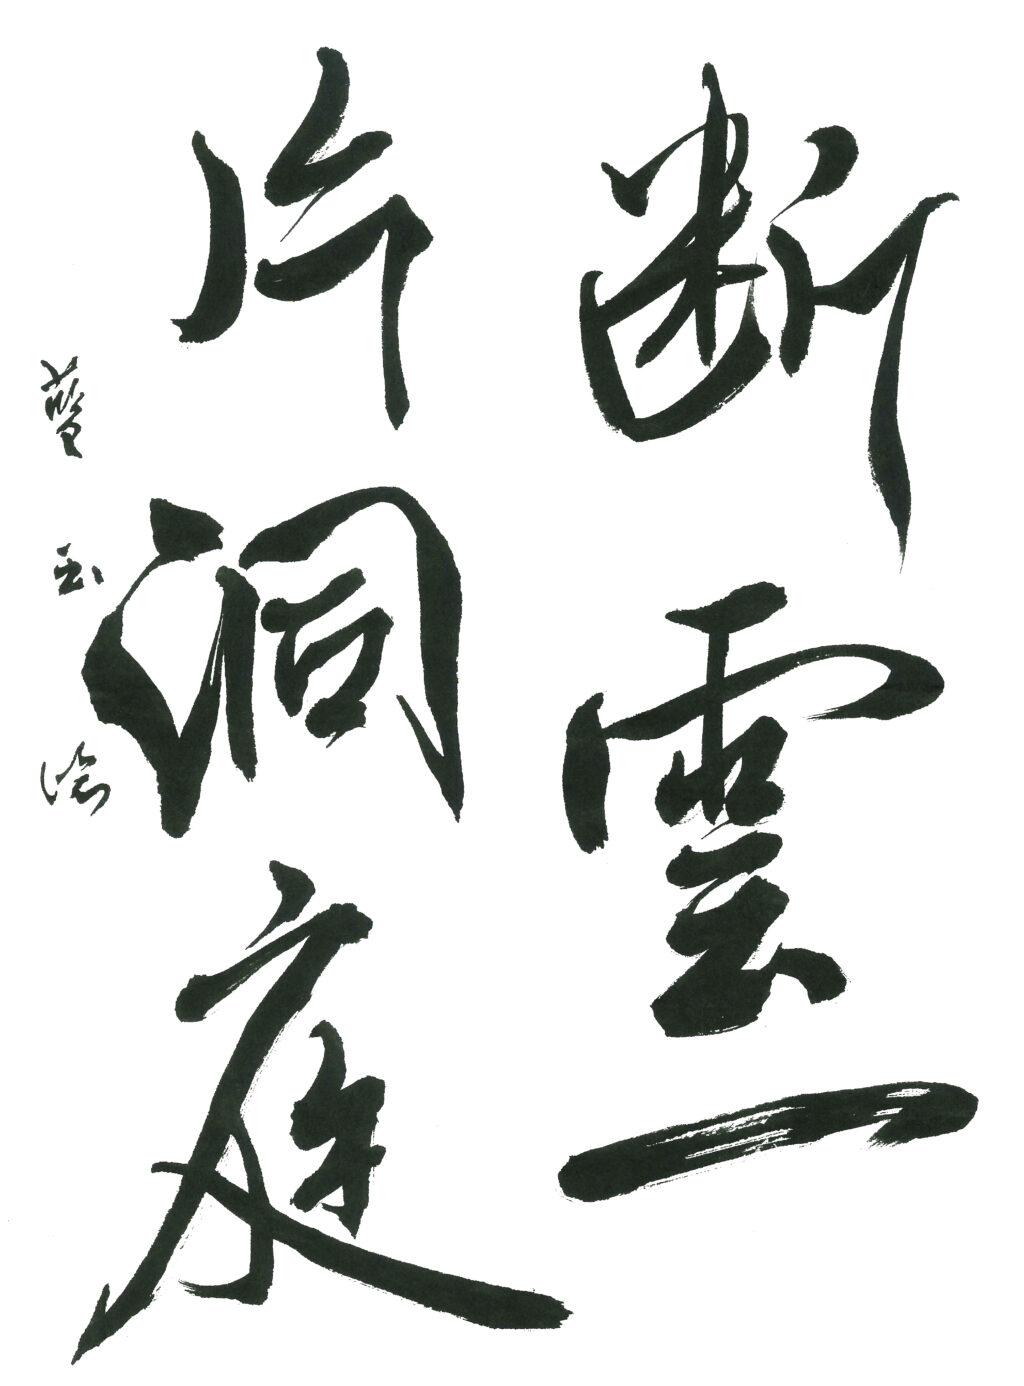 断雲一
片洞庭